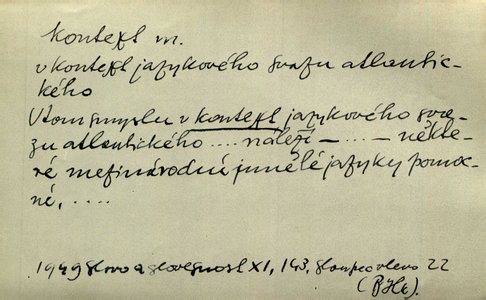 kontext m.
v kontext jazykového svazu atlantic-
kého
V tom smyslu v kontext jazykového sva-
zu atlantického .... náleží — .... — někte-
ré mezinárodní umělé jazyky pomoc-
né, ....
1949 Slovo a slovesnost XI, 143, sloupec vlevo 22